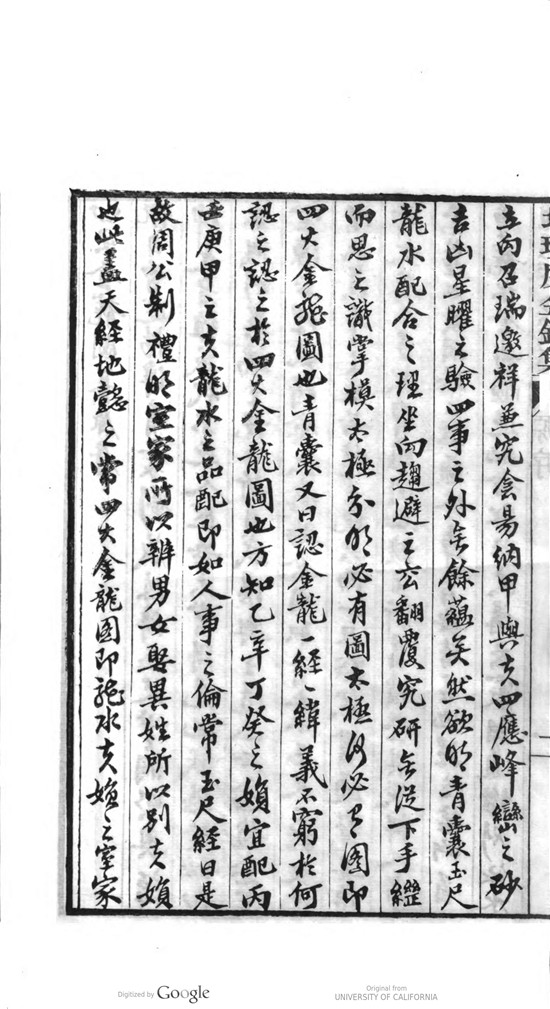 立向召瑞邀祥兼究侌昜納甲與夫四應峰巒之砂
吉凶星曜之驗四事之外無餘蘊矣然欲明青囊玉尺
龍水配合之理坐向趨避之玄翻覆究研無從下手繼
而思之識掌模太極分明必有圖太極何必有圖即
四大金龍圖也青囊又曰認金龍一經一緯義不窮於何
認之認之於四大金龍圖也方知乙辛丁癸之婦宜配丙
壬庚甲之夫龍水之品配即如人事之倫常玉尺經曰是
故周公制禮明室家所以辨男女娶異姓所以別夫婦
也此蓋天經地懿之常四大金龍圖即龍水夫婦之室家
Digitized by Google
Original from
UNIVERSITY OF CALIFORNIA